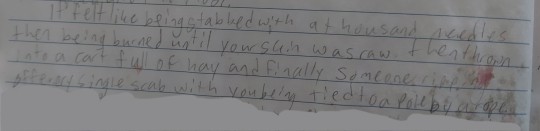 It felt like being stabbed with a thousand needles
then being burned until your skin was raw. then thrown
into a cart full of hay and finally Someone ripping
off every single scab with you being tied to a pole by a rope